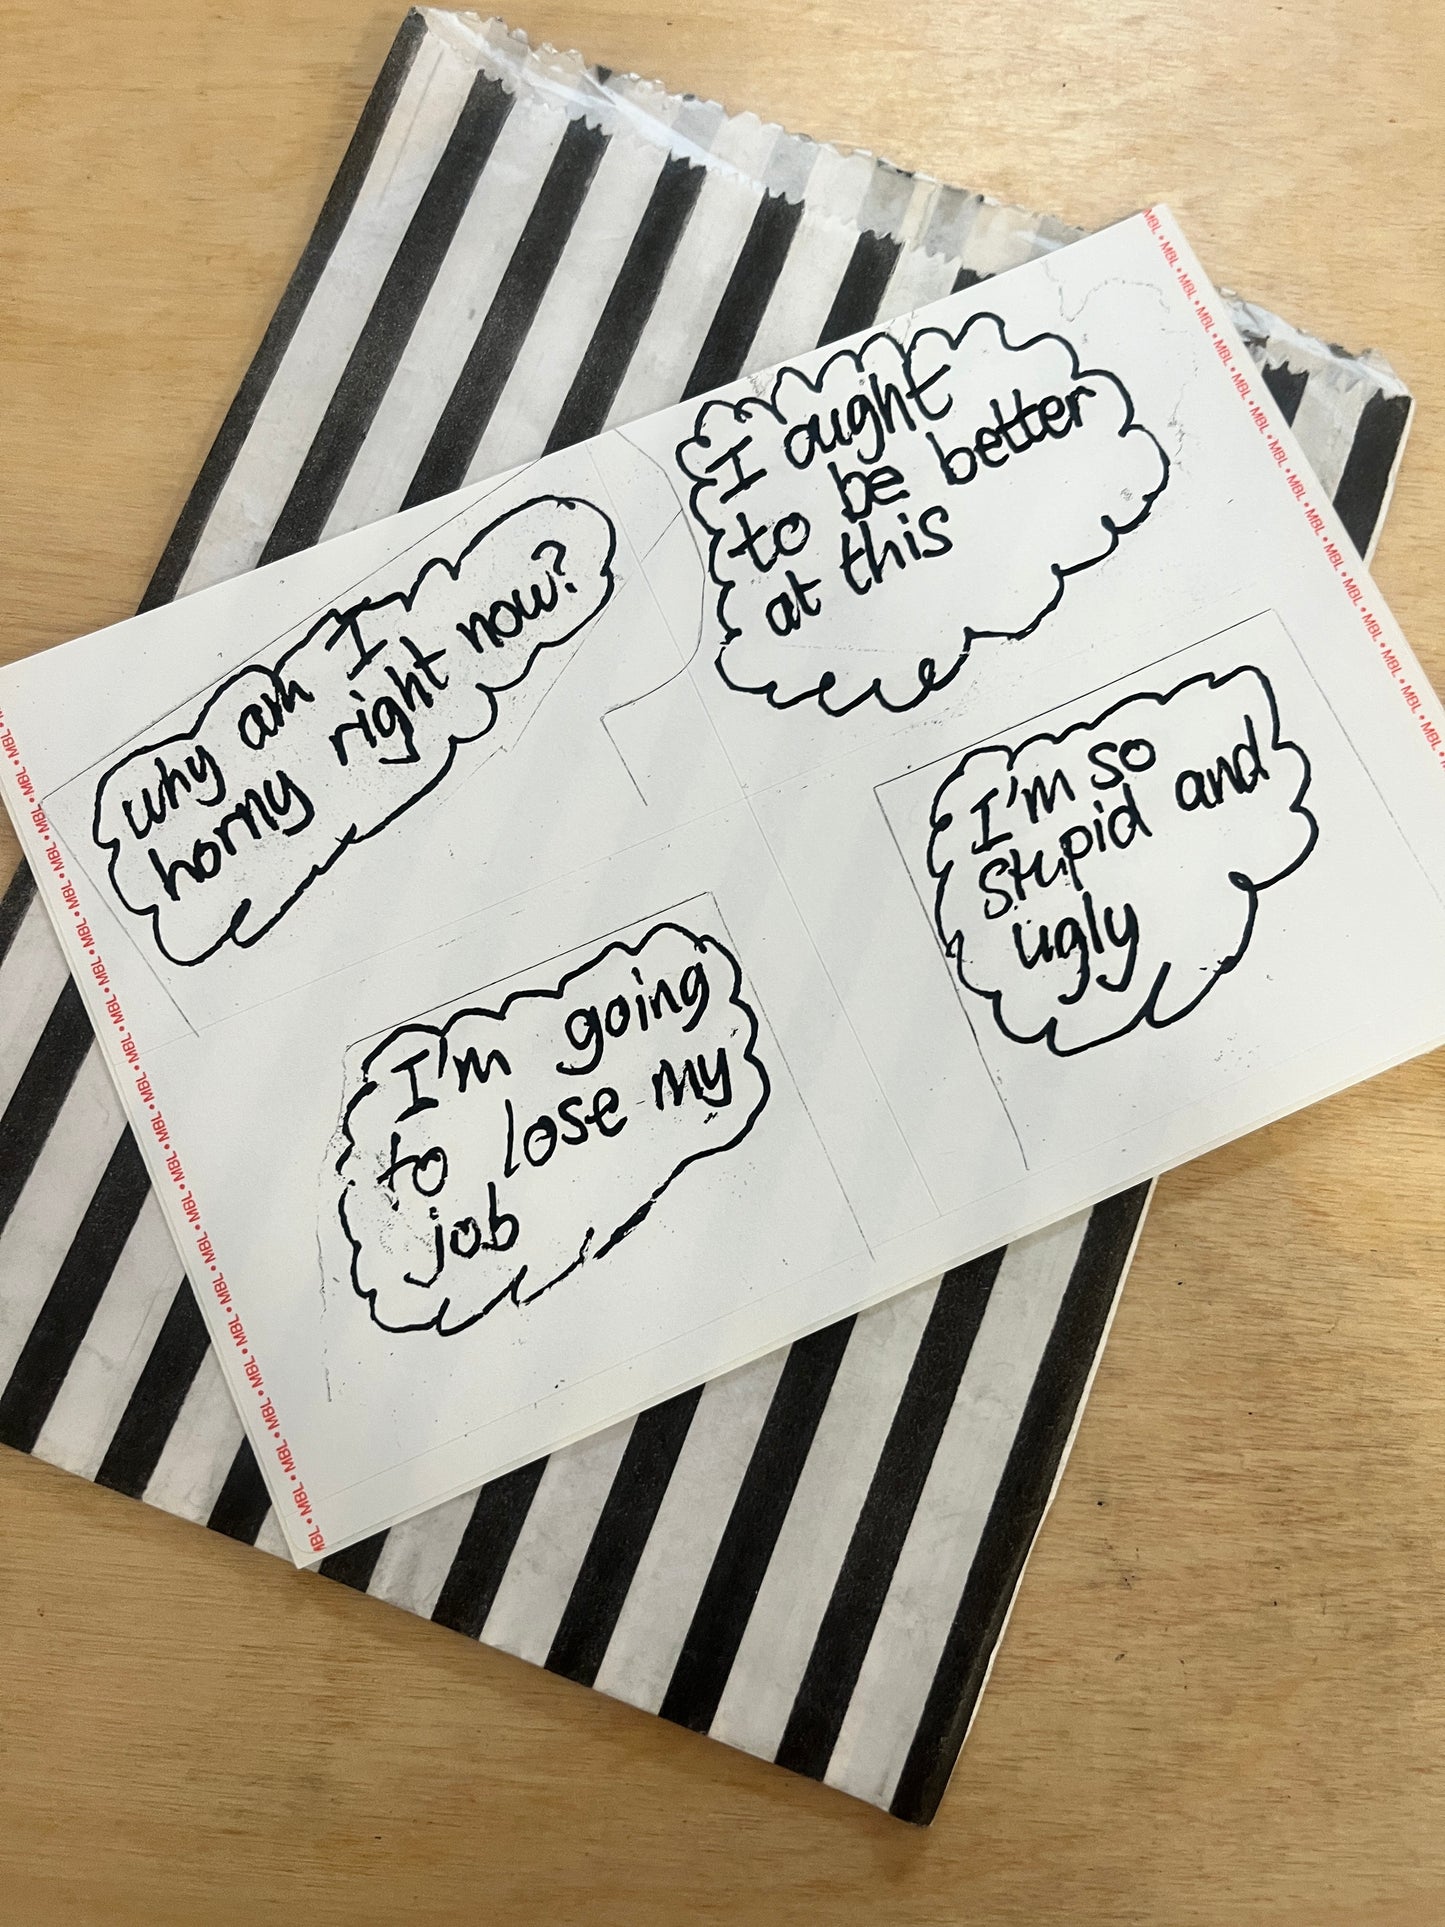 why am I
horny right now?
I ought
to be better
at this
I'm so
stupid and
ugly
I'm going
to lose my
job
MBL • MBL • MBL • MBL • MBL • MBL • MBL • MBL • MBL • MBL • MBL • MBL • MBL • MBL • MBL • MBL • MBL • MBL
MBL • MBL • MBL • MBL • MBL • MBL • MBL • MBL • MBL • MBL • MBL • MBL • MBL • MBL • MBL • MBL • MBL